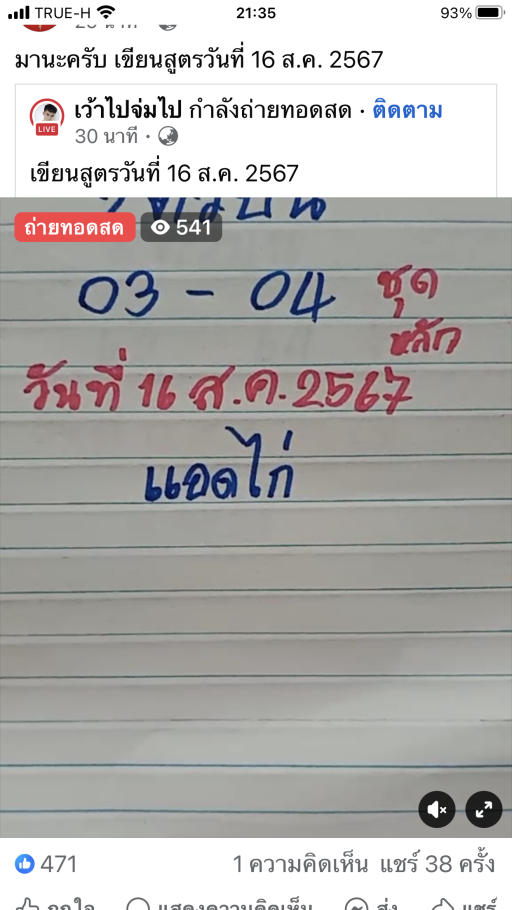 TRUE-H 21:35 93%
มานะครับ เขียนสูตรวันที่ 16 ส.ค. 2567
เว้าไปจ่มไป กำลังถ่ายทอดสด · ติดตาม
LIVE
30 นาที ·
เขียนสูตรวันที่ 16 ส.ค. 2567
ถ่ายทอดสด 541
03 - 04 ชุด
หลัก
วันที่ 16 ส.ค. 2567
แอดไก่
471 1 ความคิดเห็น แชร์ 38 ครั้ง
ถูกใจ แสดงความคิดเห็น ส่ง แชร์